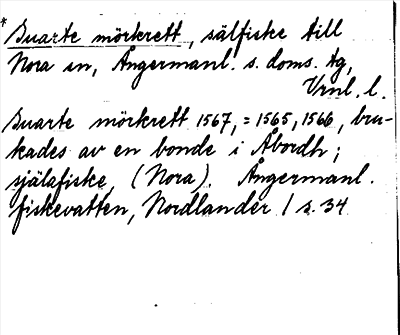 * Suarte mörkrett, sälfiske till
Nora sn, Ångermanl. s. doms. tg,
Vrnl. l.
Suarte mörkrett 1567, = 1565, 1566, bru-
kades av en bonde i Åbordh;
själafiske, (Nora). Ångermanl.
fiskevatten, Nordlander / s. 34